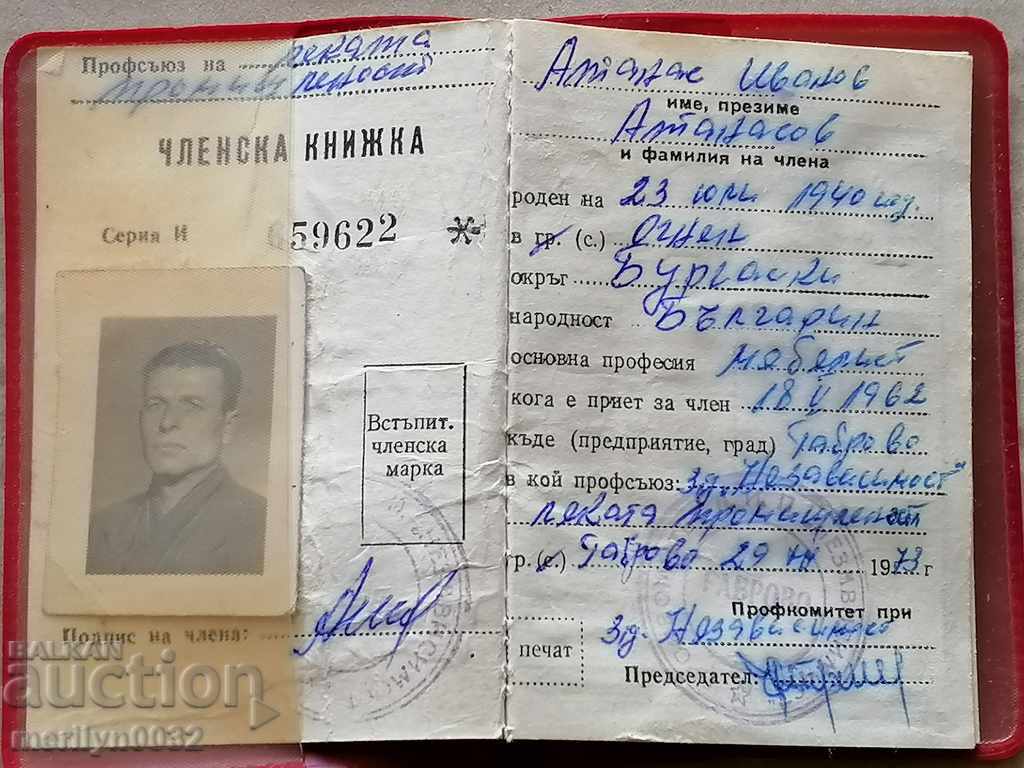 Профсъюз на леката
промишленост
ЧЛЕНСКА КНИЖКА
Серия И 659622 *
Встъпит.
членска
марка
Подпис на члена:
Атанас Иванов
име, презиме
Атанасов
и фамилия на члена
роден на 23 юли 1940 год.
в гр. (с.) Огнен
окръг Бургаски
народност Българин
основна професия мебелист
кога е приет за член 18 V 1962
къде (предприятие, град) Габрово
в кой профсъюз: зд. "Независимост"
леката промишленост
гр. (с.) Габрово 29 1973 г
Профкомитет при
зд. Независимост
печат
Председател:
ГАБРОВО
BALKAN
auction
merilyn0032